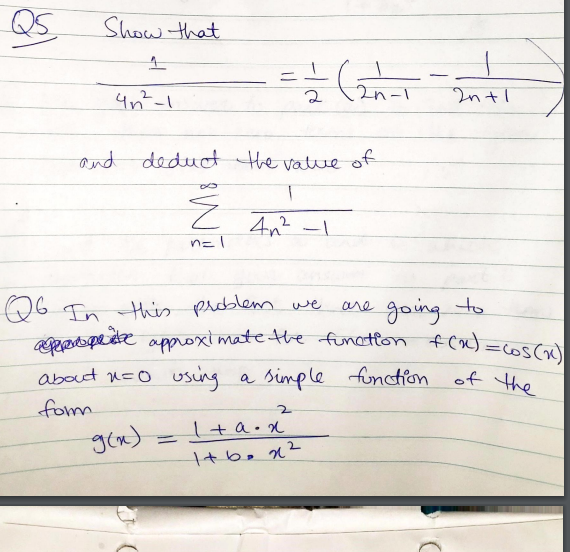 Q5 Show that
1/(4n²-1) = 1/2 (1/(2n-1) - 1/(2n+1))
and deduct the value of
∞ Σ n=1 1/(4n² -1)
Q6 In this problem we are going to
approximate the function f(x)=cos(x)
about x=0 using a simple function of the
form
g(x) = (1+a.x²)/(1+b.x²)